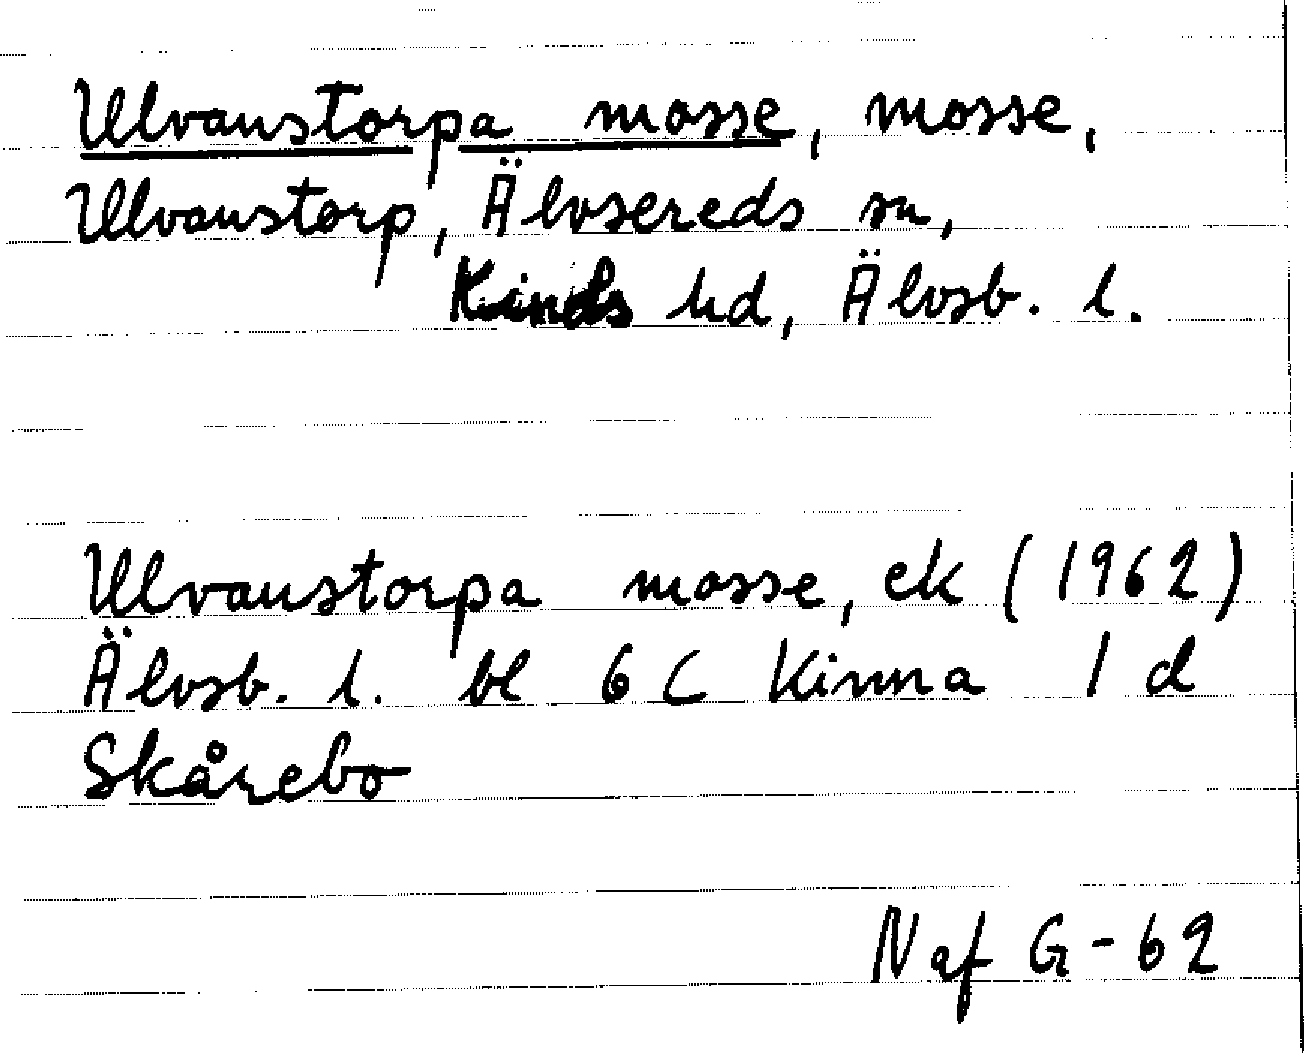 Ulvanstorpa mosse, mosse,
Ulvanstorp, Älvsereds sn,
Kinds hd, Älvsb. l.
Ulvanstorpa mosse, ek (1962)
Älvsb. l. bl 6 C Kinna 1 d
Skårebo
Naf G-62